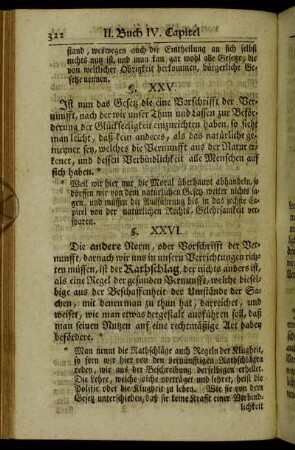 312 II. Buch IV. Capitel
stand, weswegen auch die Eintheilung an sich selbst
nichts nutz ist, und man kan gar wohl alle Gesetze, die
von weltlicher Obrigkeit herkommen, bürgerliche Ge-
setze nennen.
§. XXV.
Ist nun das Gesetz die eine Vorschrifft der Ver-
nunfft, nach der wir unser Thun und Lassen zur Befö-
derung der Glückseligkeit einzurichten haben, so sieht
man leicht, daß kein anderes, als das natürliche ge-
meynet sey, welches die Vernunfft aus der Natur er-
kennet, und dessen Verbindlichkeit alle Menschen auf
sich haben. *
* Weil wir hier nur die Moral überhaupt abhandeln, so
dörffen wir von dem natürlichen Gesetz weiter nichts sa-
gen, und müssen die Ausführung bis in das sechste Ca-
pitel von der natürlichen Rechts-Gelehrsamkeit ver-
sparen.
§. XXVI.
Die andere Norm, oder Vorschrifft der Ver-
nunfft, darnach wir uns in unsern Verrichtungen rich-
ten müssen, ist der Rathschlag, der nichts anders ist,
als eine Regel der gesunden Vernunfft, welche diesel-
bige aus der Beschaffenheit der Umstände der Sa-
chen, mit denen man zu thun hat, darreichet, und
weiset, wie man etwas dergestalt ausführen soll, daß
man seinen Nutzen auf eine rechtmäßige Art dabey
befördere. *
* Man nennt die Rathschläge auch Regeln der Klugheit,
so fern wir hier von den vernünfftigen Rathschlägen
reden, wie aus der Beschreibung derselbigen erhellet.
Die Lehre, welche solche vorträget und lehret, heist die
Politic oder die Klugheit zu leben. Wie sie von dem
Gesetz unterschieden, daß sie keine Krafft einer Verbind-
lichkeit